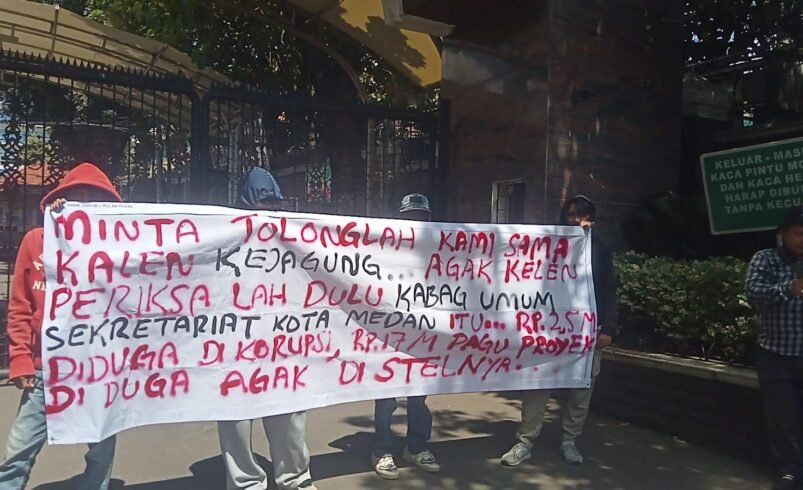 MINTA TOLONGLAH KAMI SAMA
KALEN KEJAGUNG... AGAK KELEN
PERIKSA LAH DULU KABAG UMUM
SEKRETARIAT KOTA MEDAN ITU... RP.2,5 M
DIDUGA DI KORUPSI, RP.17 M PAGU PROYEK
DI DUGA AGAK DI STELNYA...
KELUAR - MAS
KACA PINTU M
DAN KACA HE
HARAP DIBU
TANPA KECU